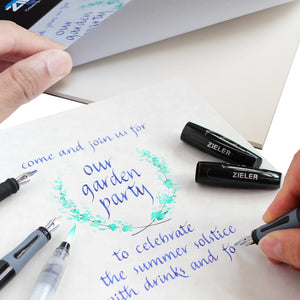 ZIELER
our
garden
come and join us for
our
garden
party
ZIELER
ZIELER
to celebrate
the summer solstice
with drinks and fo